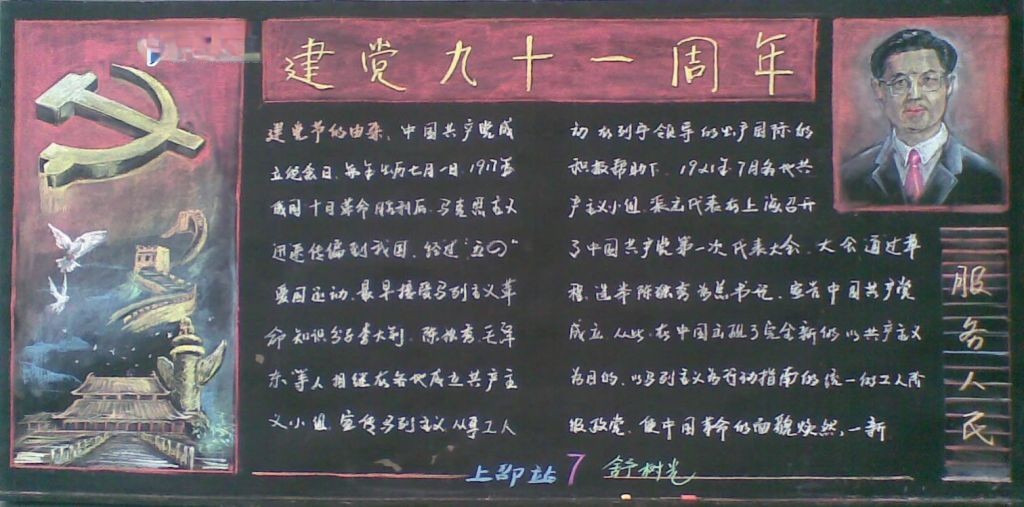 建党九十一周年
建党节的由来，中国共产党成
立纪念日，每年出历七月一日，1917年
俄国十月革命胜利后，马克思主义
迅速传遍到我国，经过“五四”
爱国运动，最早接受马列主义革
命知识分子李大利，陈独秀，毛泽
东等人相继在各地成立共产主
义小组，宣传马列主义从事工人
初 在列宁领导的共产国际的
积极帮助下，1921年7月各地共
产主义小组派出代表在上海召开
了中国共产党第一次代表大会，大会通过
程，选举陈独秀为总书记，宣告中国共产党
成立，从此，在中国出现了完全新的以共产主义
为目的，以马列主义为行动指南的统一的工人阶
级政党，使中国革命的面貌焕然，一新
服务人民
上邵站7 舒树光